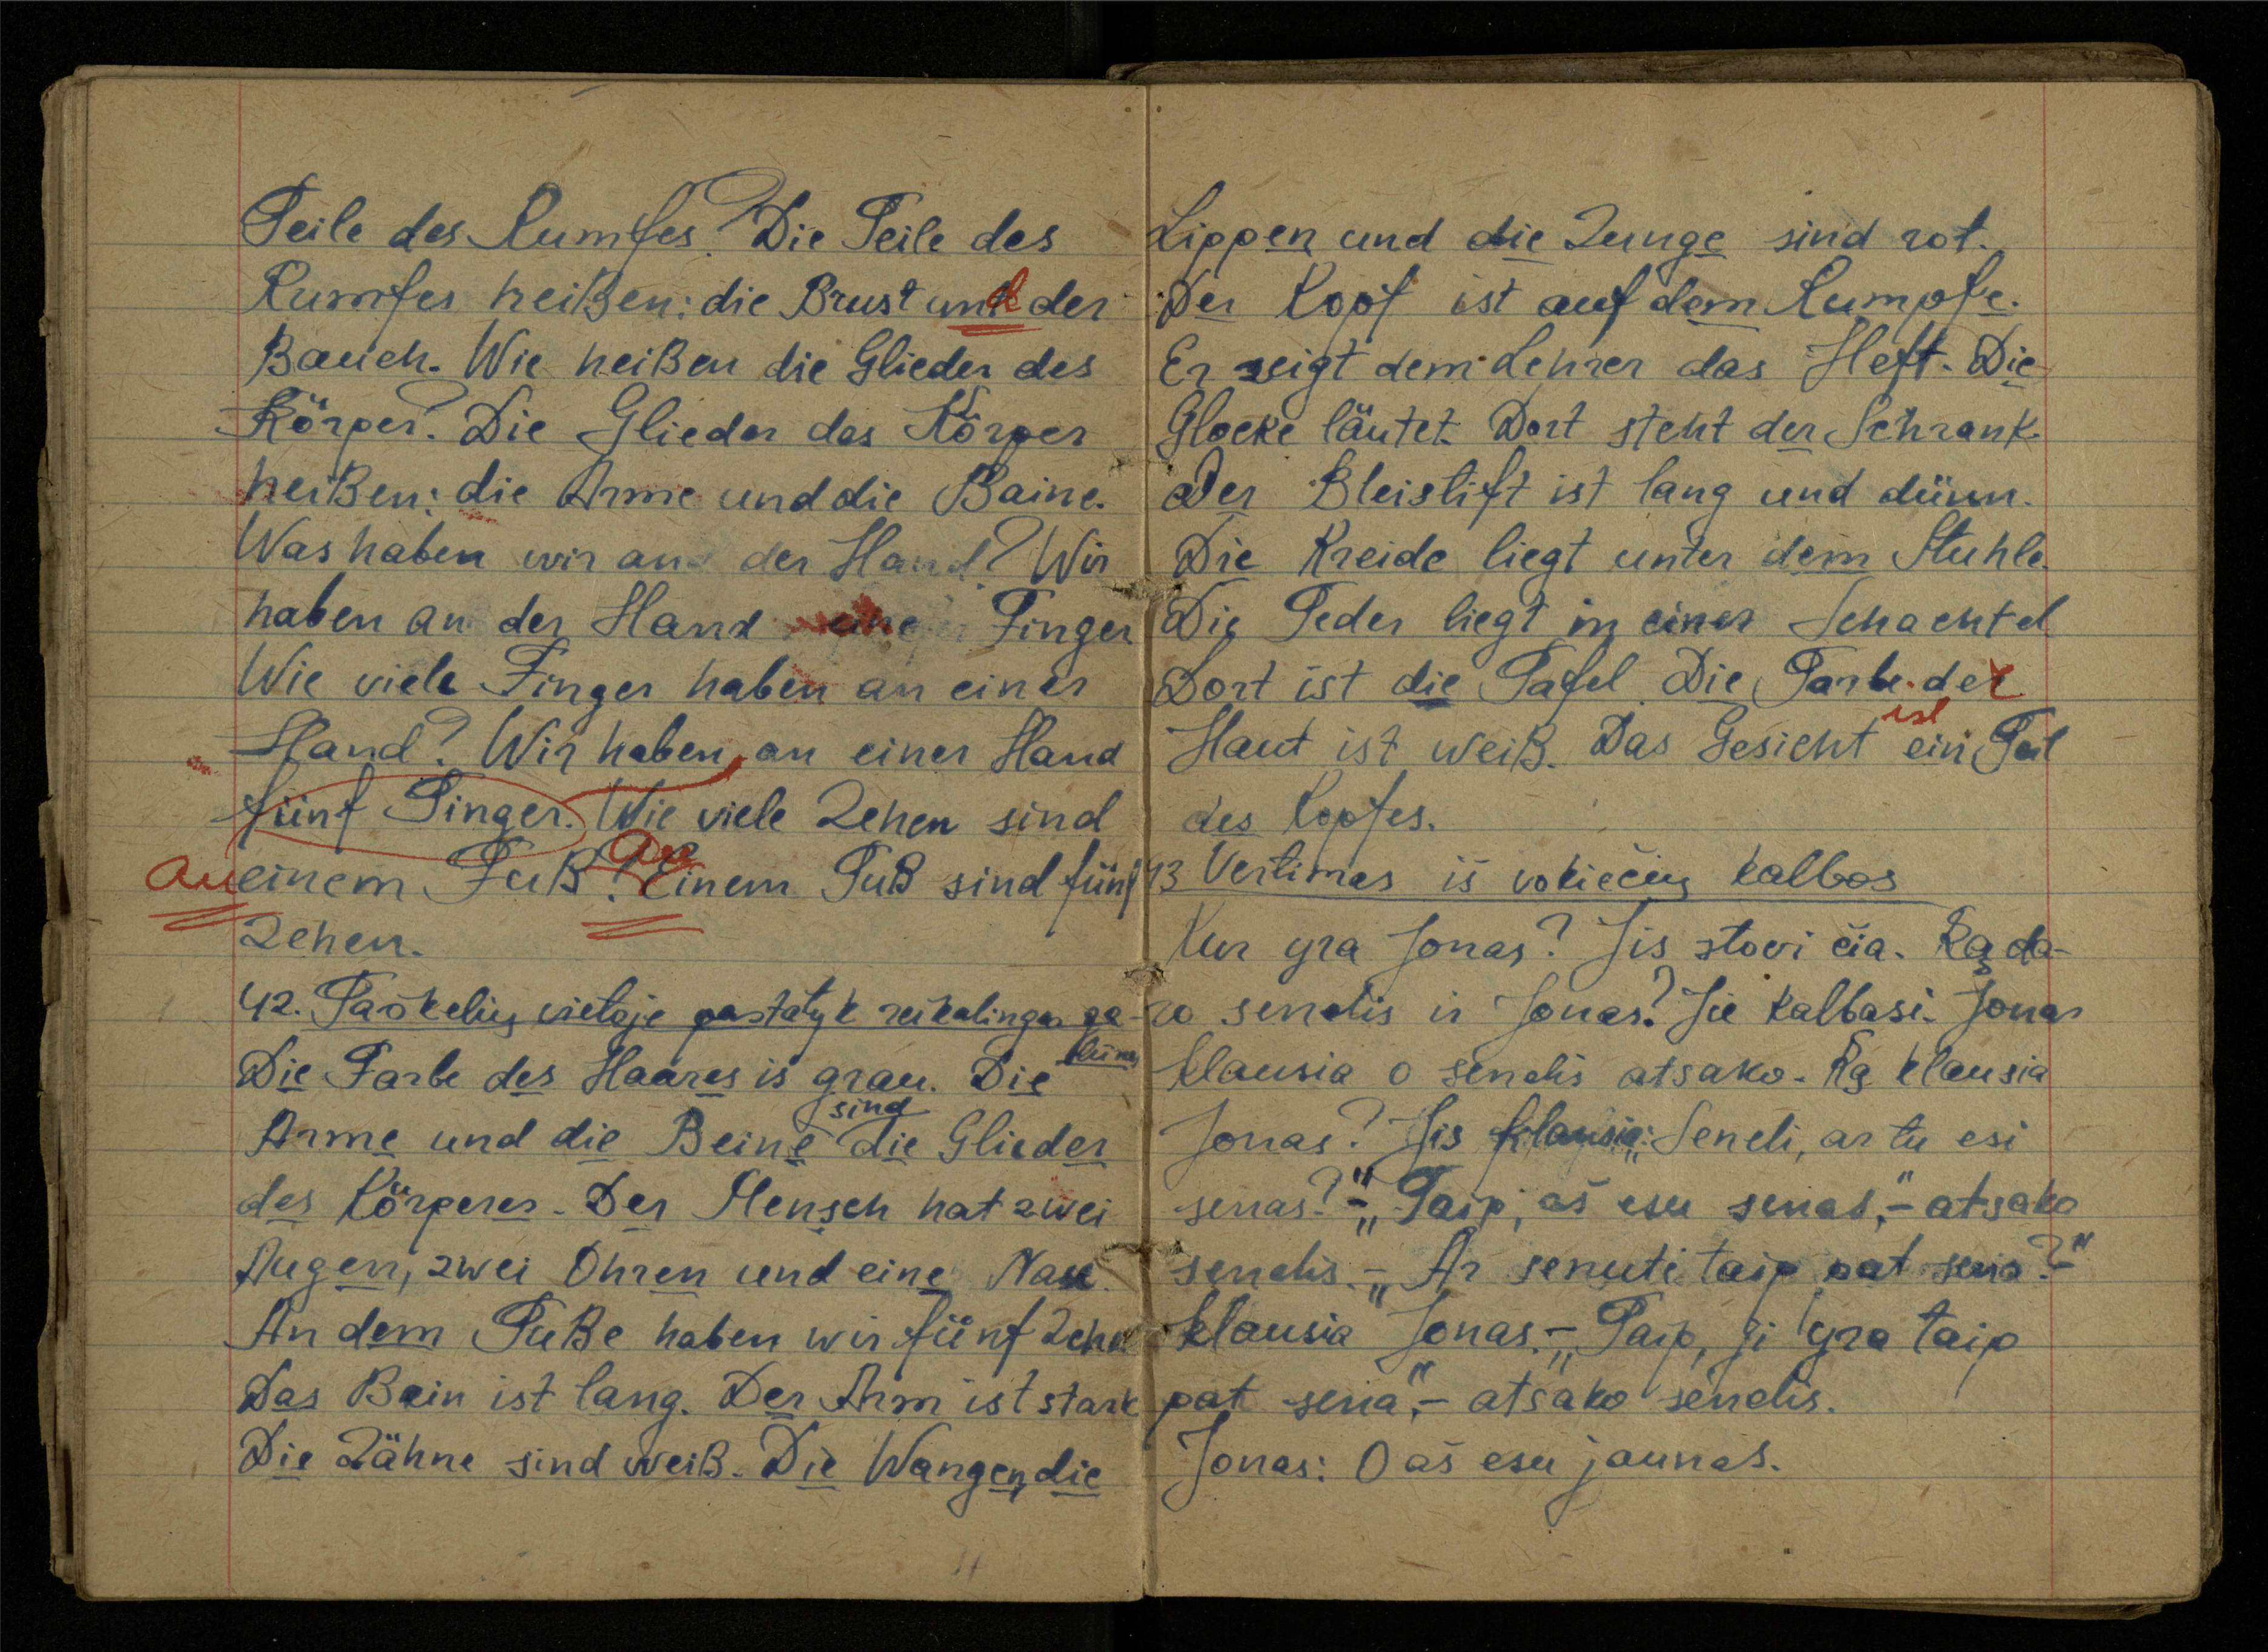 Teile des Rumfes? Die Teile des
Rumfes heißen: die Brust und der
Bauch. Wie heißen die Glieder des
Körper? Die Glieder des Körper
heißen: die Arme und die Baine.
Was haben wir an der Hand? Wir
haben an der Hand eine Finger
Wie viele Finger haben an einer
Hand? Wir haben an einer Hand
fünf Finger. Wie viele Zehen sind
an einem Fuß? An Einem Fuß sind fünf
Zehen.
42. Taškelių vietoje pastatyk reikalingas ga-
lūnes
Die Farbe des Haares is grau. Die
sind
Arme und die Beine die Glieder
des Körperes. Der Mensch hat zwei
Augen, zwei Ohren und eine Nase.
An dem Fuße haben wir fünf Zehen
Das Bein ist lang. Der Arm ist stark
Die Zähne sind weiß. Die Wangen, die
Lippen und die Zunge sind rot.
Der Kopf ist auf dem Rumpfe.
Er zeigt dem Lehrer das Heft. Die
Glocke läutet. Dort steht der Schrank.
Der Bleistift ist lang und dünn.
Die Kreide liegt unter dem Stuhle.
Die Feder liegt in einer Schachtel
Dort ist die Tafel. Die Farbe der
ist
Haut ist weiß. Das Gesicht ein Teil
des Kopfes.
43 Vertimas iš vokiečių kalbos
Kur yra Jonas? Jis stovi čia. Ką da-
ro senelis ir Jonas? Jie kalbasi. Jonas
klausia o senelis atsako. Ką klausia
Jonas? Jis klausia: „Seneli, ar tu esi
senas?" - „Taip, aš esu senas," - atsako
senelis. - „Ar senutė taip pat sena?" -
klausia Jonas. - „Taip, ji yra taip
pat sena", - atsako senelis.
Jonas: O aš esu jaunas.